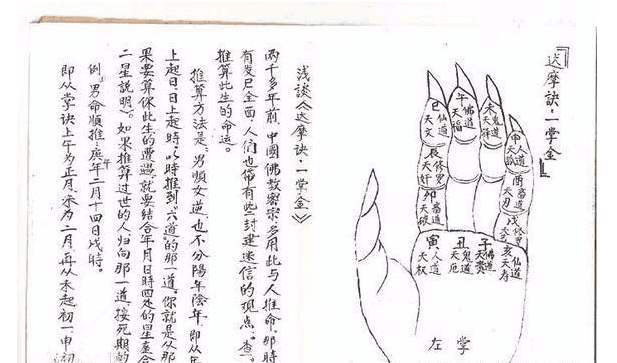 『达摩訣·一掌金
巳仙道天文
午佛道天福
未鬼道天驿
申人道天孤
辰修罗天奸
酉畜道天刃
卯畜道天破
戌修罗天艺
寅人道天权
丑鬼道天厄
子佛道天贵
亥仙道天寿
左掌
浅談《达摩訣·一掌金》
两千多年前,中國佛教密宗多用此与人推命,那時
有发尸全面,人们也带有些封建迷信的观点。查
推算此生的命运。
推算方法是,男順女逆,也不分陽年陰年,即从
上起日,日上起時,以時推到六道的那一道。你就是从那
果要算你此生的遭遇,就要結合年月日時四处的星座合
二星説明)。如果推算过世的人归向那一道,按死期的
例。男命順推:庚午年二月十四日戌時。
即从掌訣上午为正月,未为二月,再从未起初一,申初